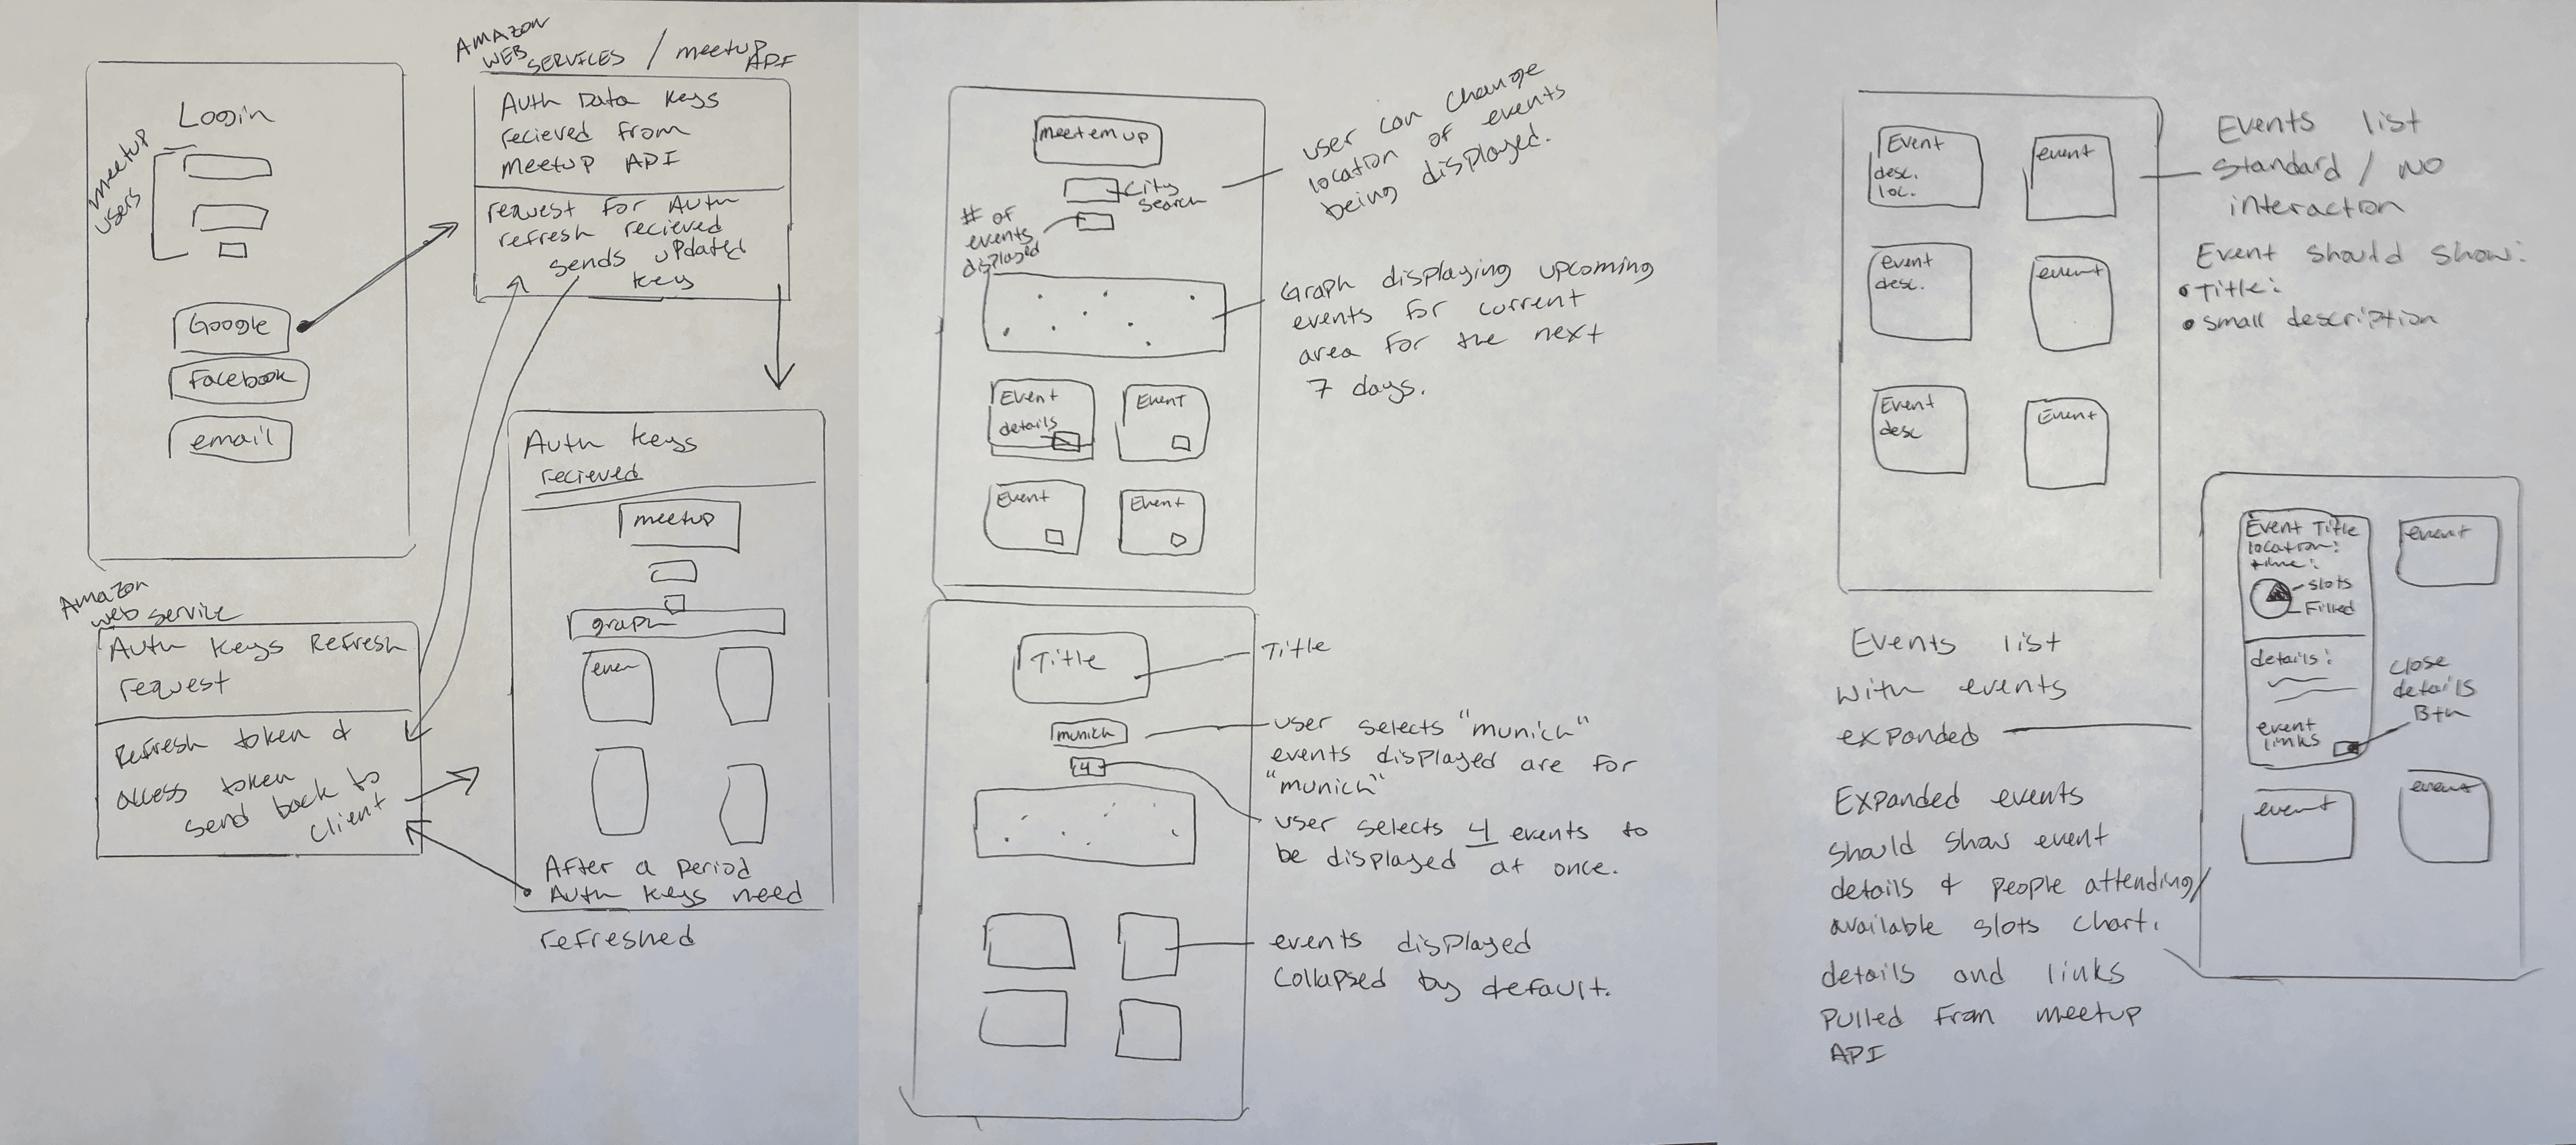 Login
meetup
users
Google
Facebook
email
Amazon
WEB
SERVICES / meetup
API
Auth Data keys
recieved from
meetup API
request for Auth
refresh recieved
sends updated
key
Auth keys
recieved
meetup
graph
even
After a period
Auth keys need
refreshed
Amazon
web service
Auth keys Refresh
request
Refresh token &
access token
send back to
client
meetemup
City
Search
# of
events
displayed
user can change
location of events
being displayed.
Graph displaying upcoming
events for current
area for the next
7 days.
Event
details
Event
Event
Event
Title
Title
munich
user selects "munich"
events displayed are for
"munich"
4
user selects 4 events to
be displayed at once.
events displayed
collapsed by default.
Event
desc.
loc.
event
event
desc.
event
Event
desc
Event
Events list
Standard / NO
interaction
Event should show:
• Title:
• small description
Events list
with events
expanded
Expanded events
should show event
details & people attending/
available slots chart.
details and links
pulled from meetup
API
Event Title
location:
time:
slots
Filled
details:
event
links
close
details
Btn
event
event
event